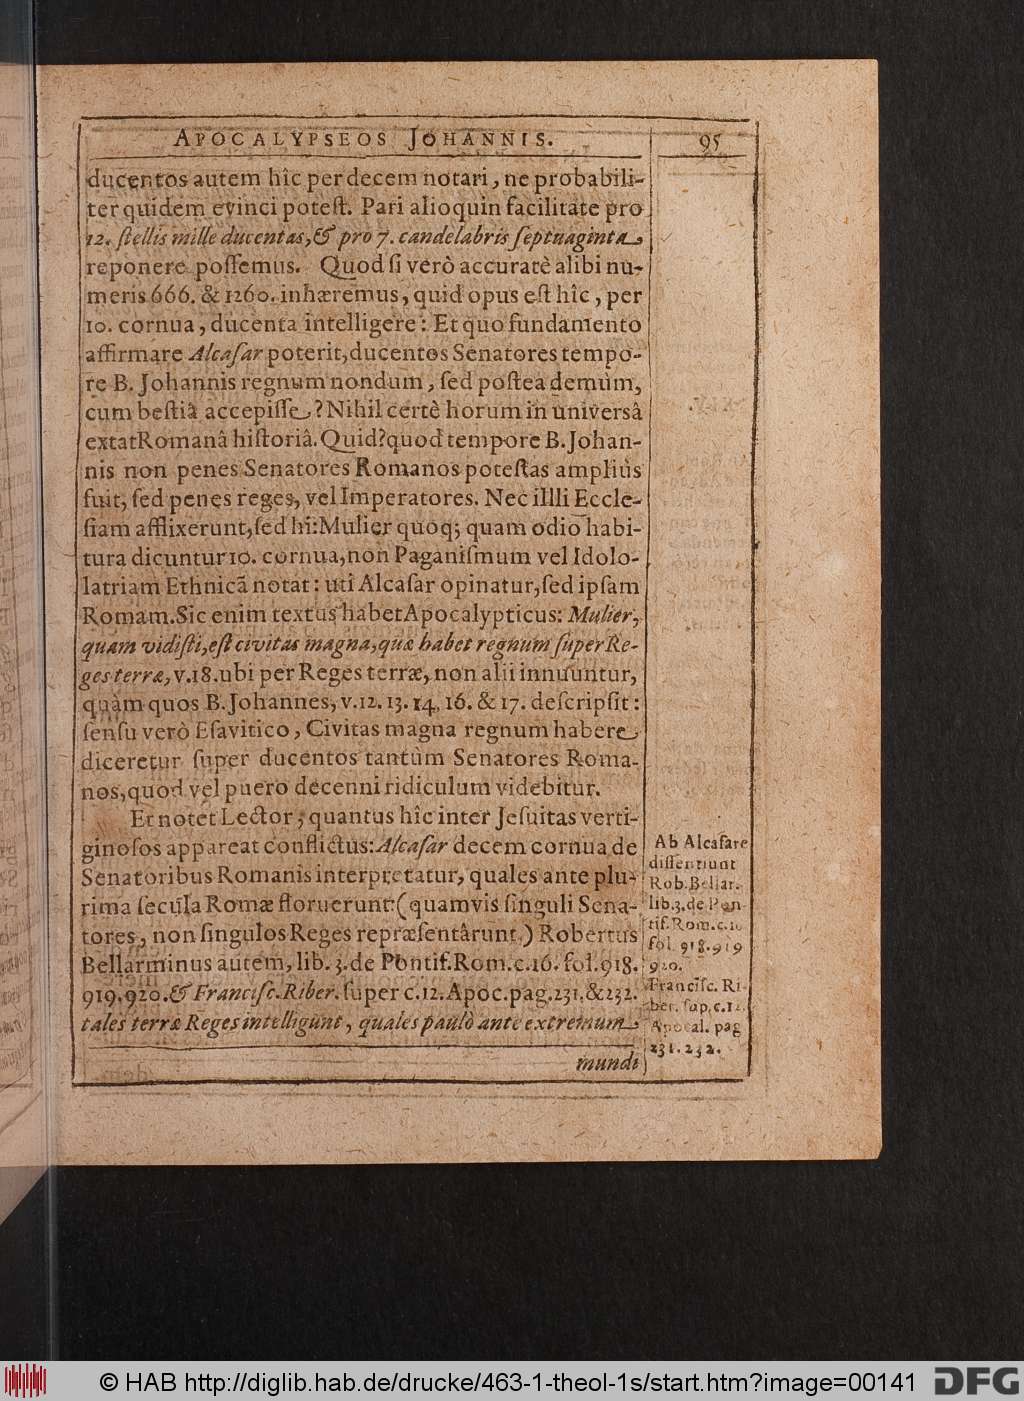 APOCALYPSEOS JOHANNIS. 95
ducentos autem hîc per decem notari, ne probabili-
ter quidem evinci poteſt. Pari alioquin facilitate pro
12. ſtellis mille ducentas, & pro 7. candelabris ſeptuaginta
reponere poſſemus. Quod ſi verò accuratè alibi nu-
meris 666. & 1260. inhæremus, quid opus eſt hîc, per
10. cornua, ducenta intelligere: Et quo fundamento
affirmare Alcaſar poterit, ducentos Senatores tempo-
re B. Johannis regnum nondum, ſed poſtea demùm,
cum beſtiâ accepiſſe? Nihil certè horum in universâ
extat Romanâ hiſtoriâ. Quid? quod tempore B. Johan-
nis non penes Senatores Romanos poteſtas ampliùs
fuit, ſed penes reges, vel Imperatores. Nec illli Eccle-
ſiam afflixerunt, ſed hi: Mulier quoq; quam odio habi-
tura dicuntur 10. cornua, non Paganiſmum vel Idolo-
latriam Ethnicã notat: uti Alcaſar opinatur, ſed ipſam
Romam. Sic enim textus habet Apocalypticus: Mulier,
quam vidiſti, eſt civitas magna, quæ habet regnum ſuper Re-
ges terræ, v. 18. ubi per Reges terræ, non alii innuuntur,
quàm quos B. Johannes, v. 12. 13. 14. 16. & 17. deſcripſit:
ſenſu verò Eſavitico, Civitas magna regnum habere
diceretur ſuper ducentos tantùm Senatores Roma-
nos, quod vel puero decenni ridiculum videbitur.
Et notet Lector, quantus hîc inter Jeſuitas verti-
ginoſos appareat conflictus: Alcaſar decem cornua de
Senatoribus Romanis interpretatur, quales ante plu-
rima ſecula Romæ floruerunt: (quamvis ſinguli Sena-
tores, non ſingulos Reges repræſentârunt.) Robertus
Bellarminus autem, lib. 3. de Pontif. Rom. c. 16. fol. 918.
919. 920. & Franciſc. Riber. ſuper c. 12. Apoc. pag. 231. & 232.
tales terræ Reges intelligunt, quales paulò ante extremum
mundi
Ab Alcaſare
diſſentiunt
Rob. Bellar.
lib. 3. de Pon-
tif. Rom. c. 16
fol. 918. 919
920.
Franciſc. Ri-
ber. ſup. c. 12.
Apocal. pag
231. 232.
© HAB http://diglib.hab.de/drucke/463-1-theol-1s/start.htm?image=00141
DFG